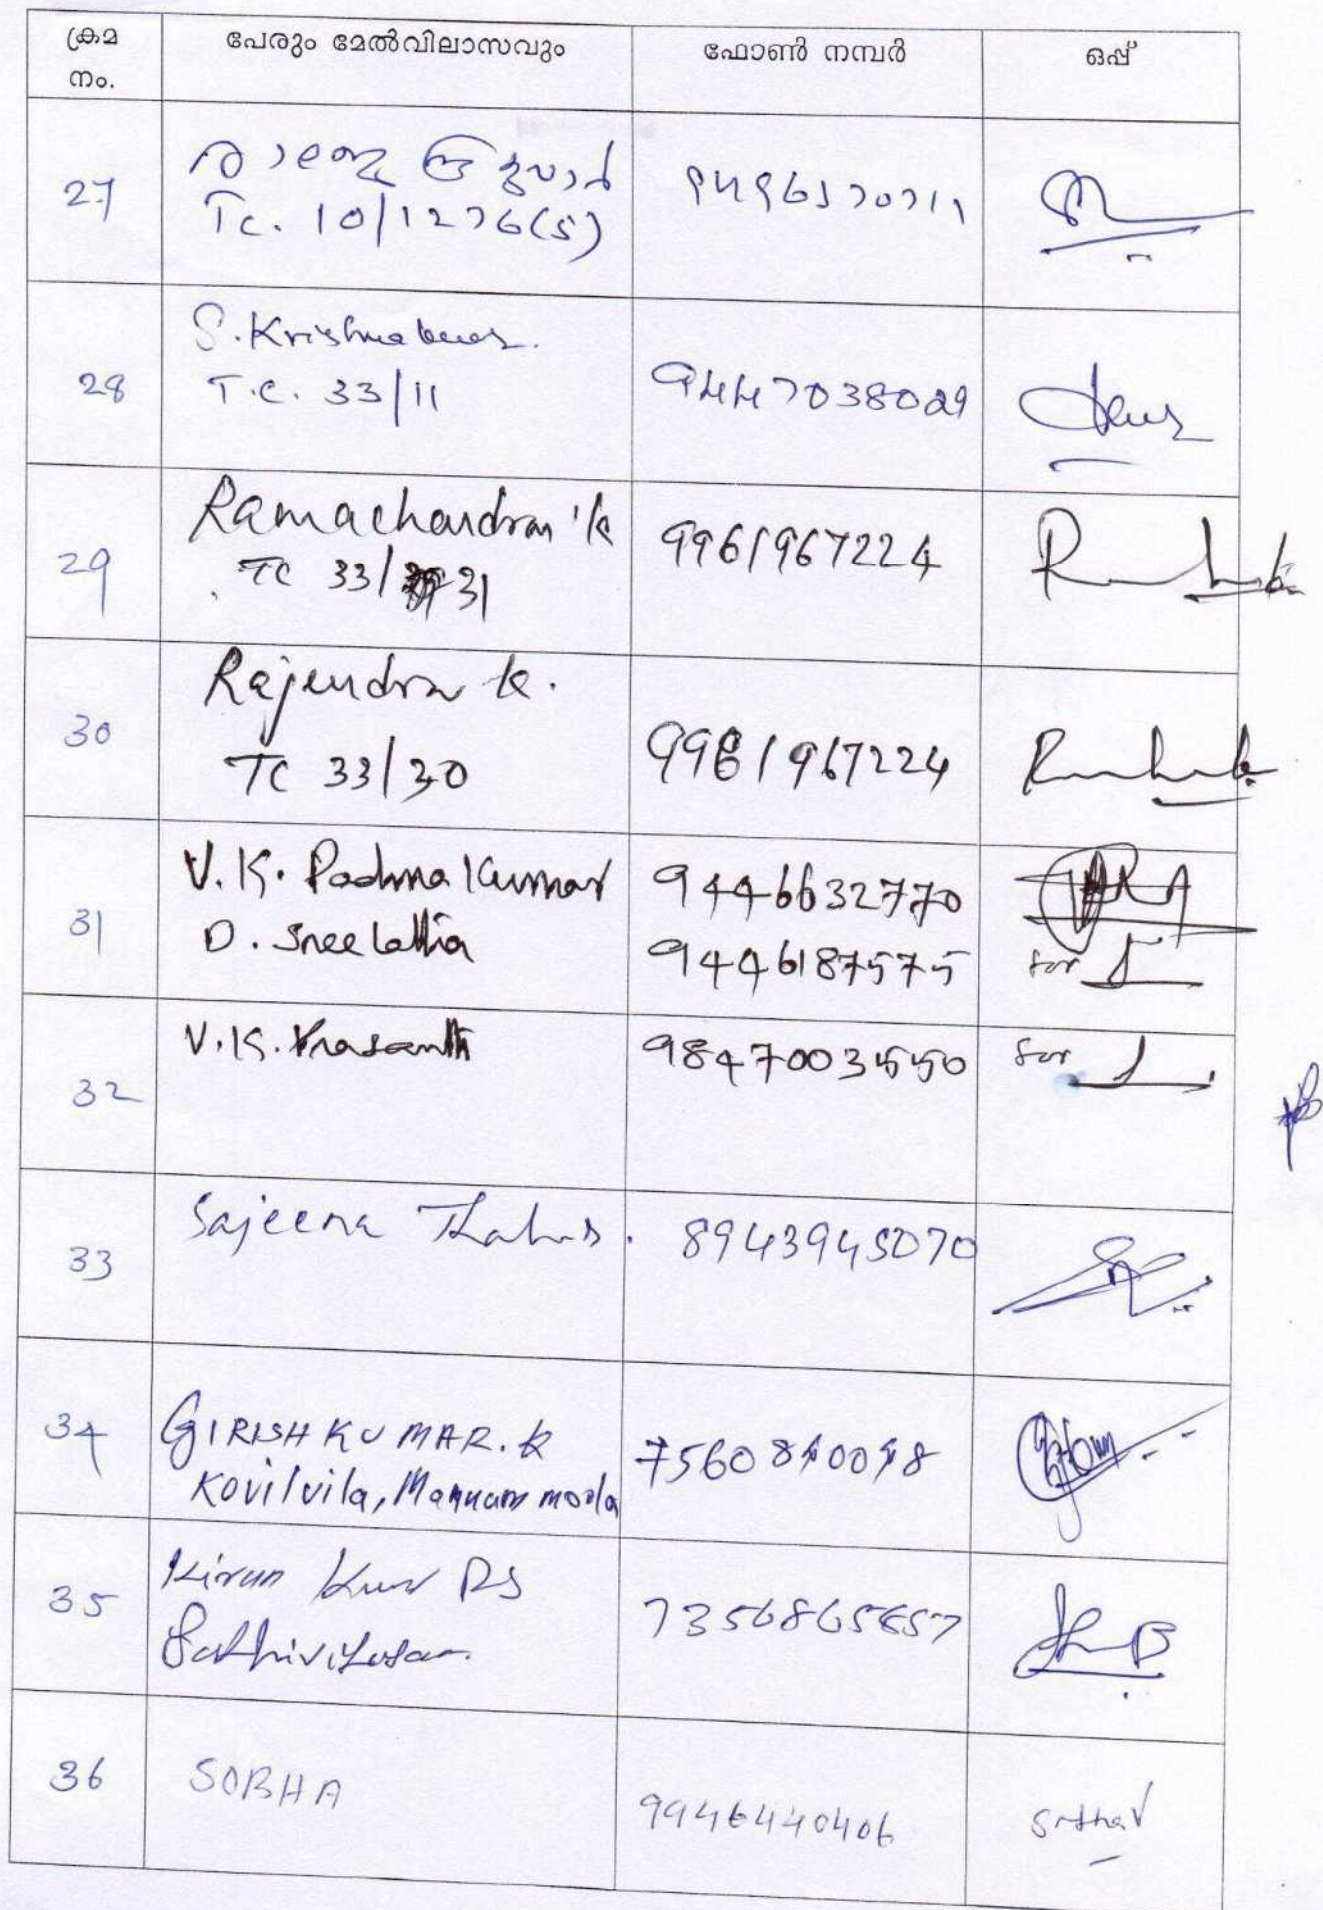 ക്രമ
നം.
പേരും മേൽവിലാസവും
ഫോൺ നമ്പർ
ഒപ്പ്
27
Tc. 10/1276(5)
28
S. Krishnakumar
T.C. 33/11
9447038029
29
Ramachandran K
TC 33/31
9961967224
30
Rajendran K.
TC 33/30
9961967224
31
V.K. Padmakumar
9446632770
D. Sreelatha
9446187575
for
32
V.K. Prasanth
9847003550
for
33
Sajeena
8943945070
34
GIRISH KUMAR. K
Kovilvila, Mannammoola
35
Kiran Kumar RS
36
SOBHA
9946440406